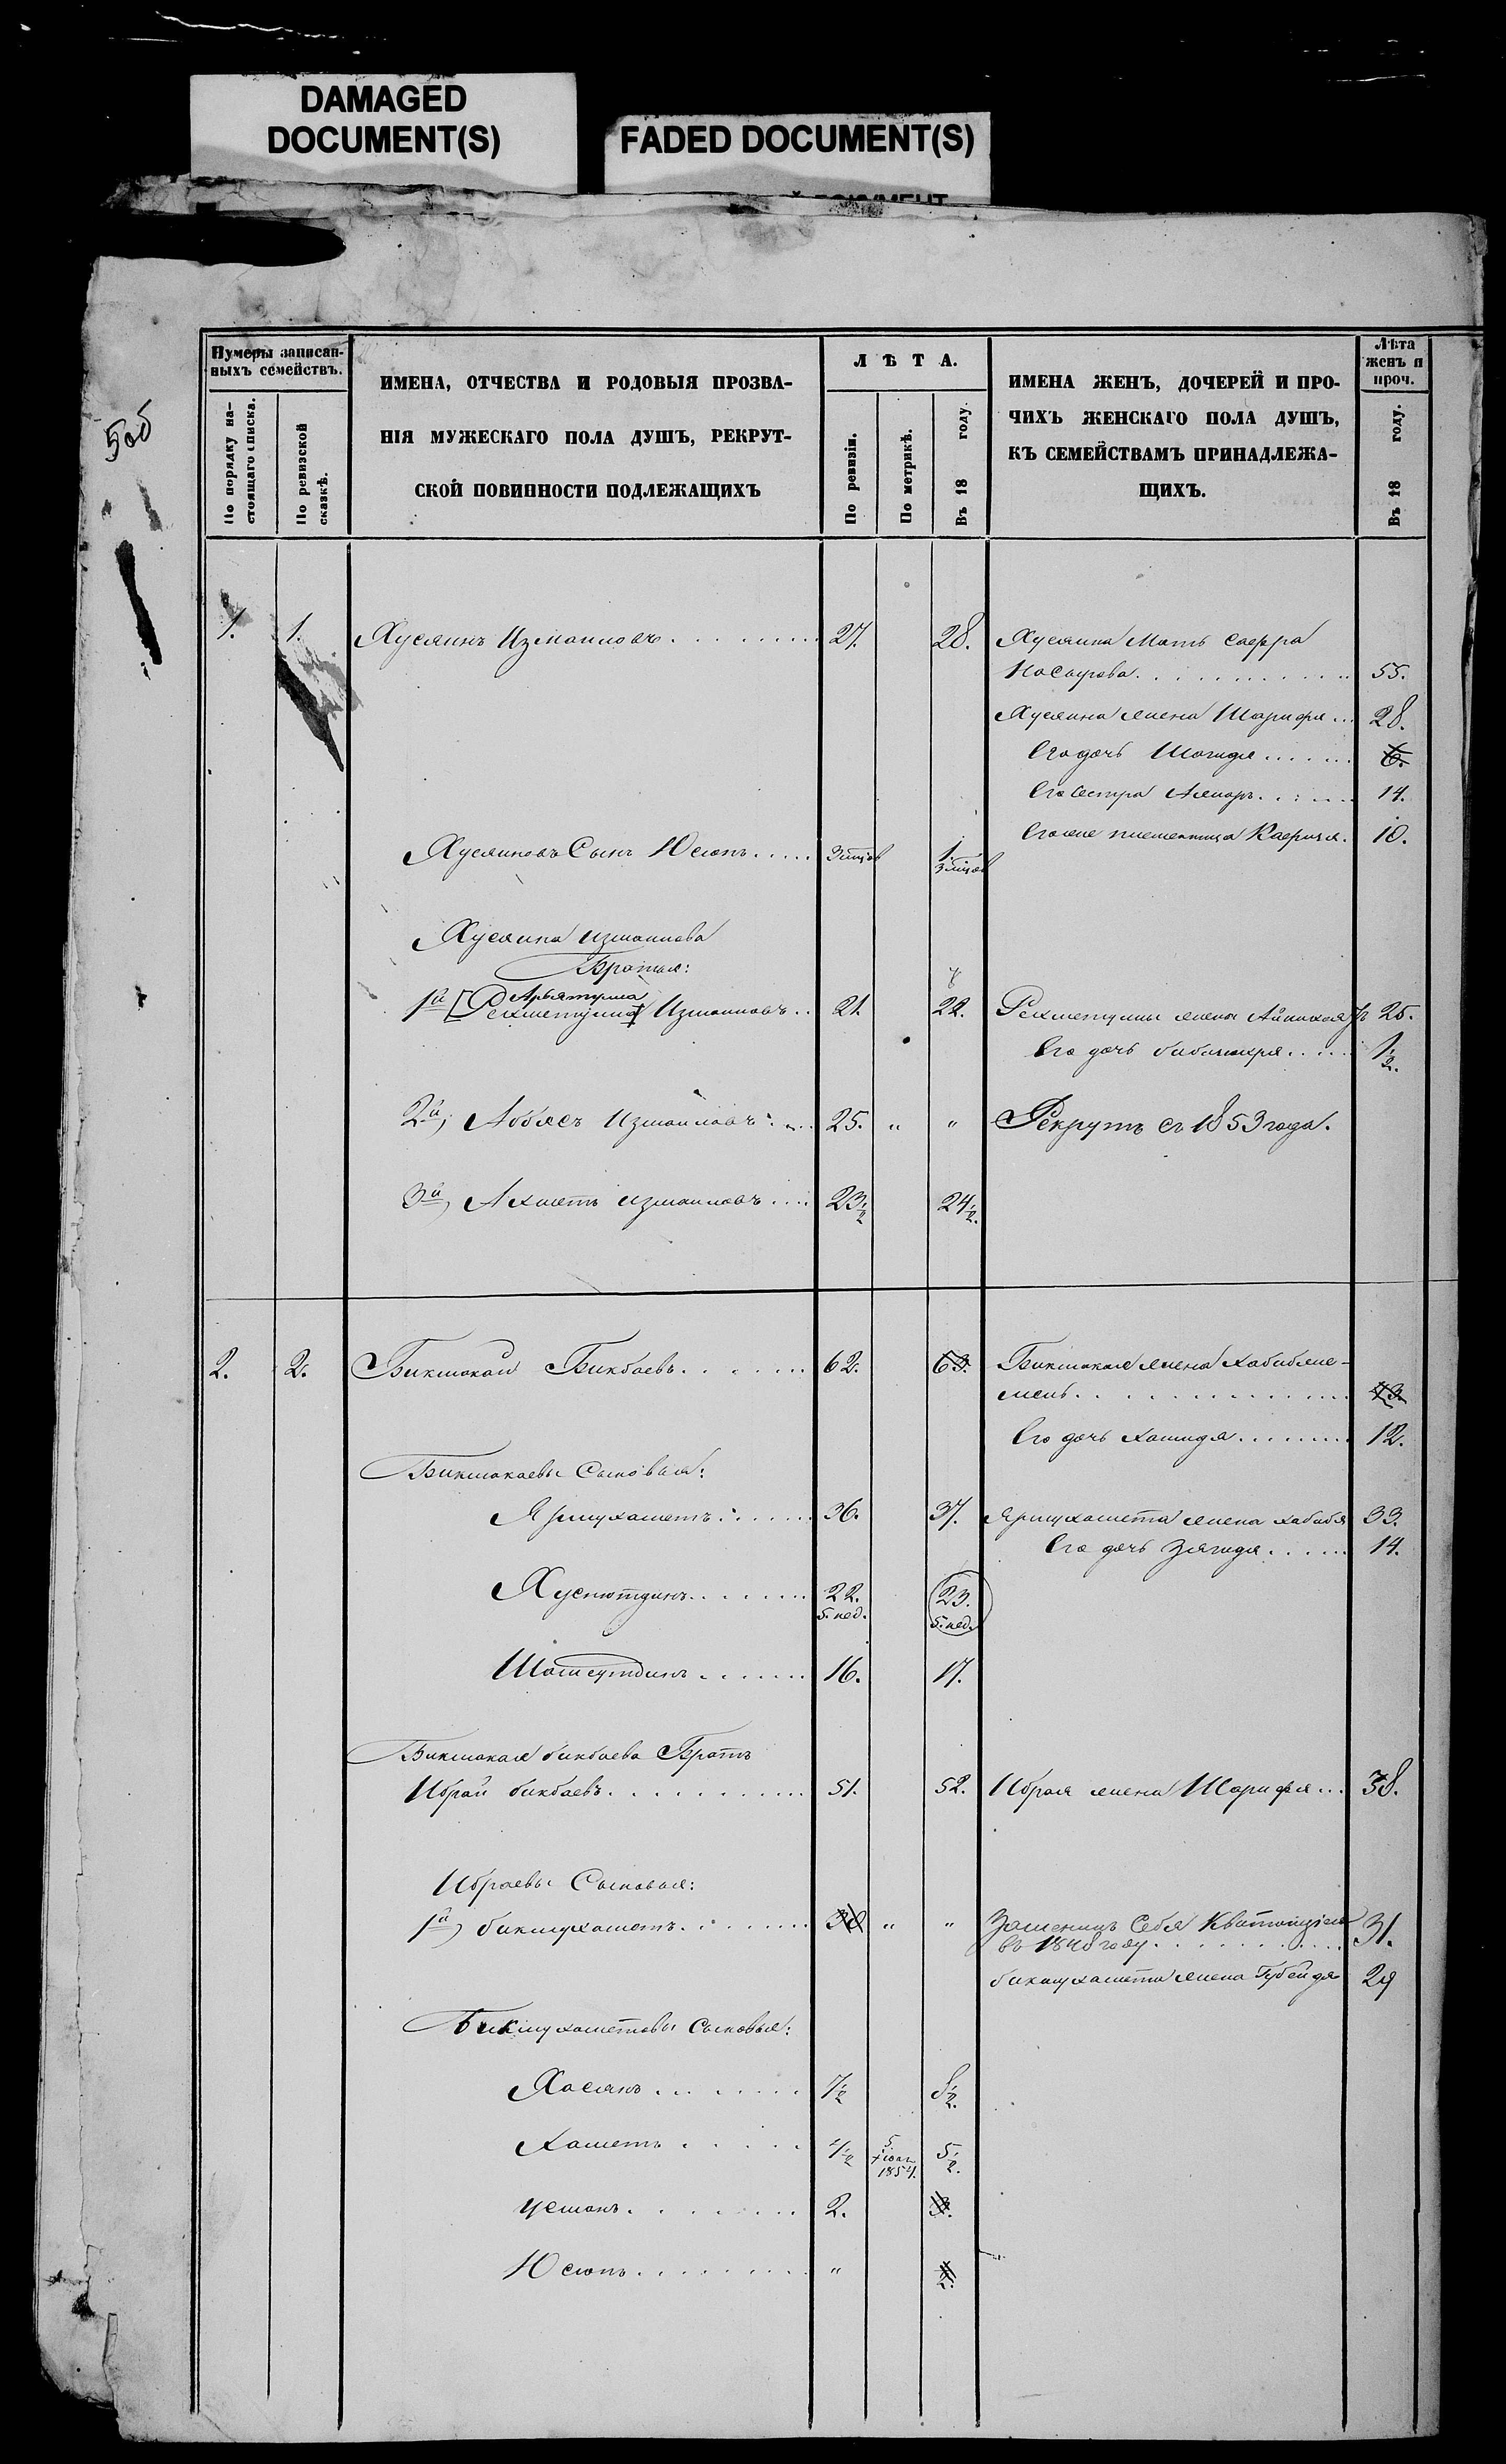 DAMAGED
DOCUMENT(S)
FADED DOCUMENT(S)
506
Нумеры записан-
ныхъ семействъ.
По порядку на-
стоящаго списка.
По ревизской
сказкѣ.
ИМЕНА, ОТЧЕСТВА И РОДОВЫЯ ПРОЗВА-
НІЯ МУЖЕСКАГО ПОЛА ДУШЪ, РЕКРУТ-
СКОЙ ПОВИННОСТИ ПОДЛЕЖАЩИХЪ
ЛѢТА.
По ревизіи.
По метрикѣ.
Въ 18 году.
ИМЕНА ЖЕНЪ, ДОЧЕРЕЙ И ПРО-
ЧИХЪ ЖЕНСКАГО ПОЛА ДУШЪ,
КЪ СЕМЕЙСТВАМЪ ПРИНАДЛЕЖА-
ЩИХЪ.
Лѣта
женъ и
проч.
Въ 18 году.
1. 1. Хусяинъ Измаиловъ 27. 28. Хусяина Мать Сафра
Насырова 55.
Хусяина жена Шарифя 28.
Его дочь Шагидя 6.
Его сестра 14.
Его же племянница 10.
Хусяиновъ Сынъ Юсюпъ 3 мцов 1. 3 мцов
Хусяина Измаилова
Братья:
1й Рехметулла Измаиловъ 21. 22. Рехметуллы жена 25.
Его дочь 1/2.
2й, Аббясъ Измаиловъ 25. " " Рекрутъ съ 1853 года.
3й, Ахметъ Измаиловъ 23 1/2 24 1/2.
2. 2. Бикшакай Бикбаевъ 62. 63. Бикшакая жена Хабибзя-
мень 43.
Его дочь Хамидя 12.
Бикшакаевы Сыновья:
Ярмухаметъ 36. 37. Ярмухамета жена Хабибя 33.
Его дочь Зягидя 14.
Хуснютдинъ 22. 5. нед. 23. 5. нед.
Шамсутдинъ 16. 17.
Бикшакая Бикбаева Братъ
Ибрай Бикбаевъ 51. 52. Ибрая жена Шарифя 38.
Ибраевы Сыновья:
1й, Бикмухаметъ 30 " " Заменилъ Себя Квитанціею 31.
въ 1848 году
Бикмухамета жена Губейдя 29
Бикмухаметовы Сыновья:
Хасянъ 7 1/2 8 1/2.
Хаметъ 4 1/2 5 1854. 5 1/2.
Усманъ 2. 3.
Юсюпъ " 2.